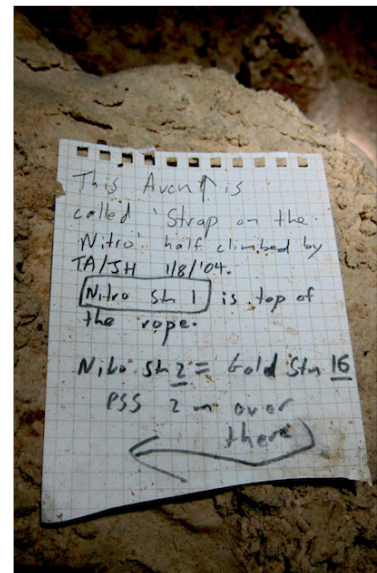 This Aven ↑ is
called 'Strap on the
Nitro' half climbed by
TA/JH 1/8/'04.
Nitro Stn 1 is top of
the rope.
Nitro Stn 2 = Gold Stn 16
PSS 2m over
there